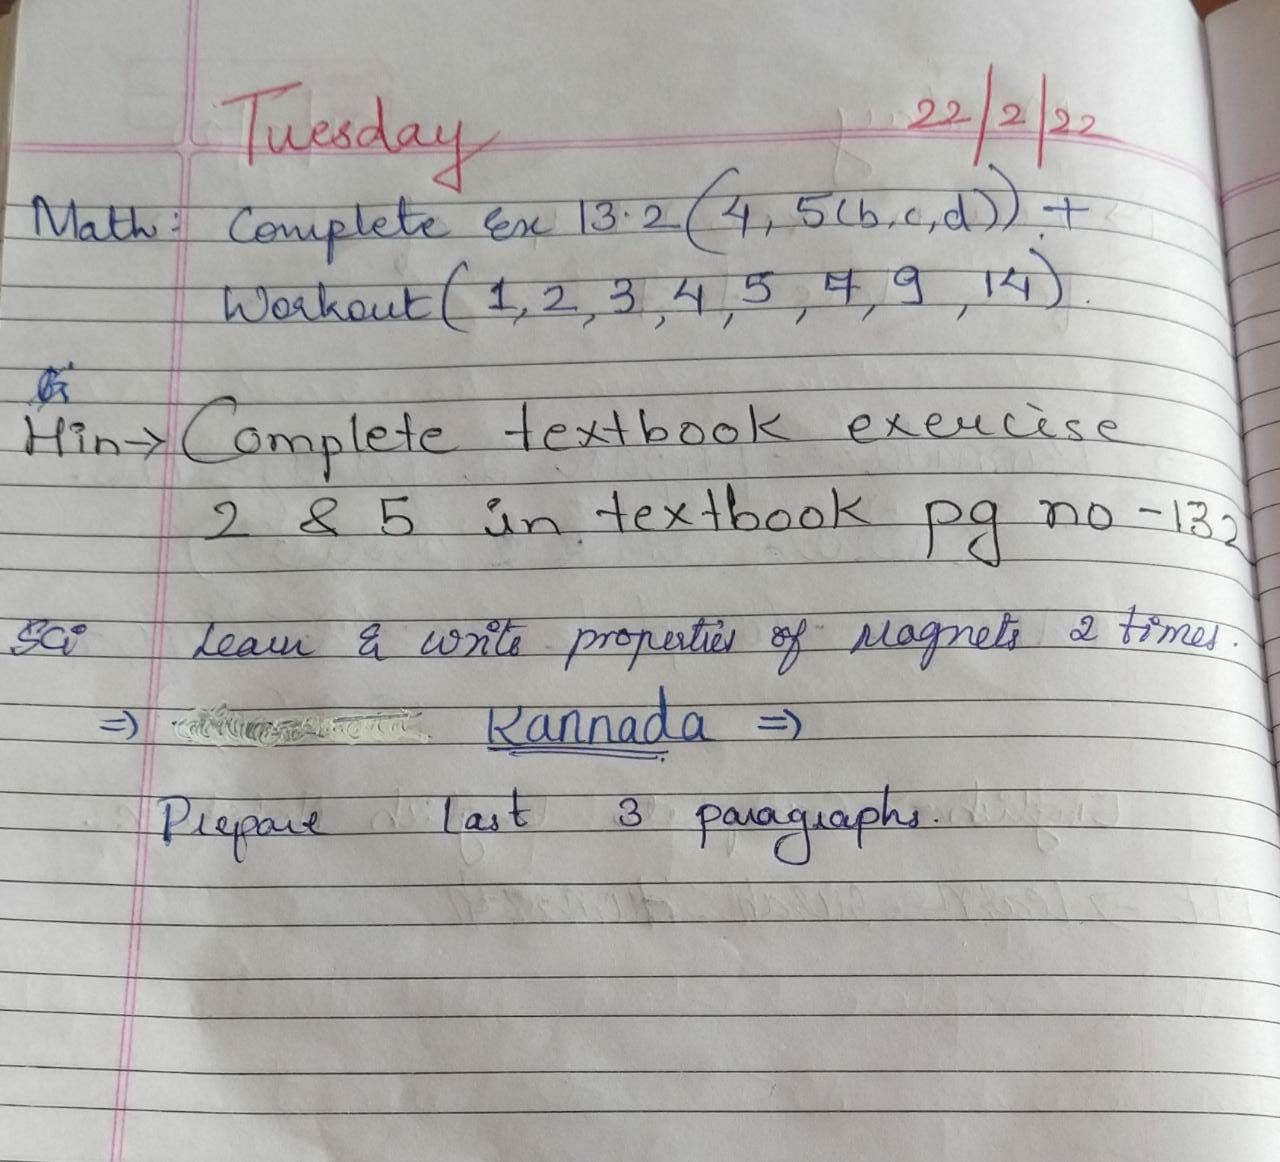 Tuesday 22/2/22
Math: Complete Ex 13.2 (4, 5(b,c,d)) +
Workout (1, 2, 3, 4, 5, 7, 9, 14).
Hin→ Complete textbook exercise
2 & 5 in textbook pg no - 132
Sci Learn & write properties of Magnets 2 times.
⇒ Kannada ⇒
Prepare Last 3 paragraphs.